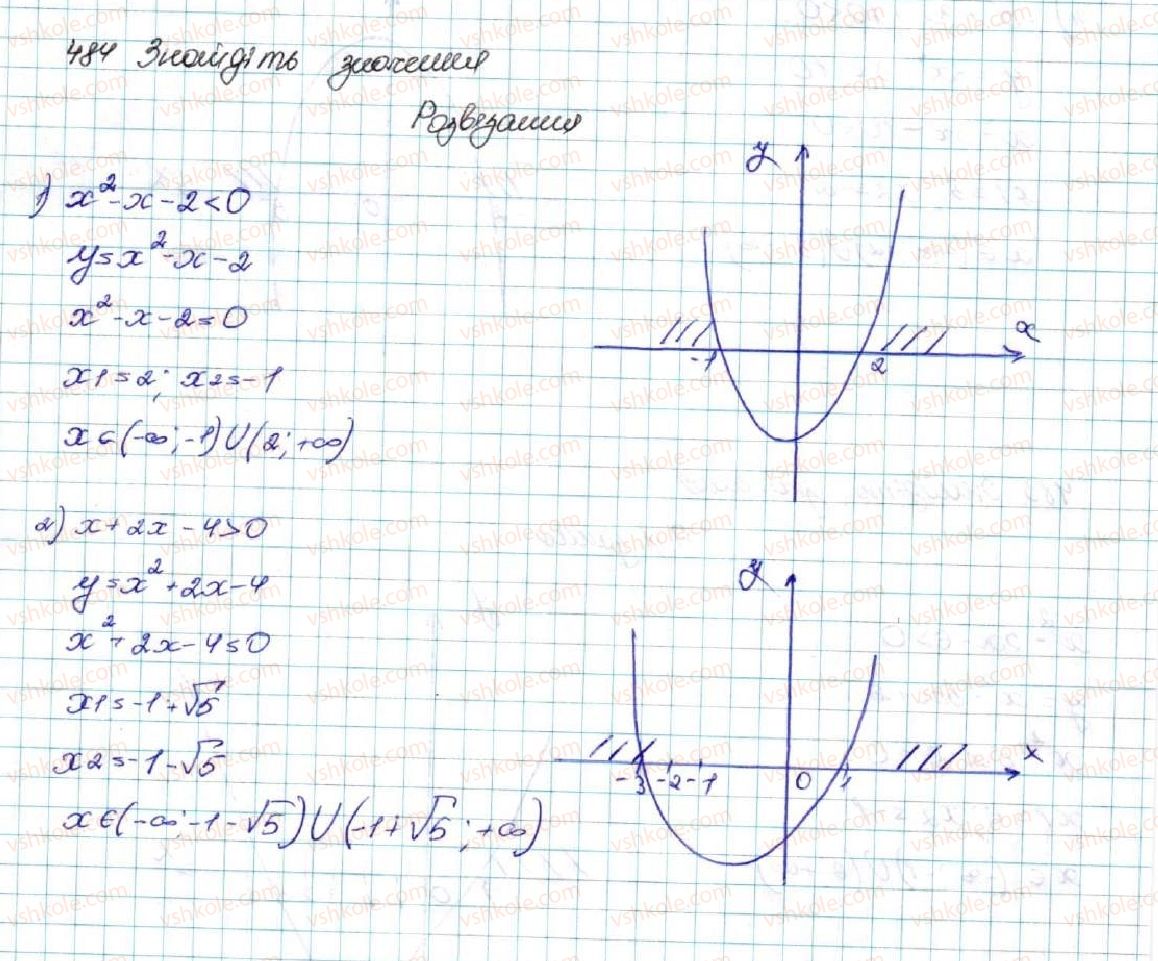 484 Знайдіть значення
Розвязання
1) x²-x-2<0
y=x²-x-2
x²-x-2=0
x1=2; x2=-1
x∈(-∞;-1)∪(2;+∞)
y
x
-1
2
2) x+2x-4>0
y=x²+2x-4
x²+2x-4=0
x1=-1+√5
x2=-1-√5
x∈(-∞;-1-√5)∪(-1+√5;+∞)
y
x
-3 -2 -1 0 1
vshkole.com